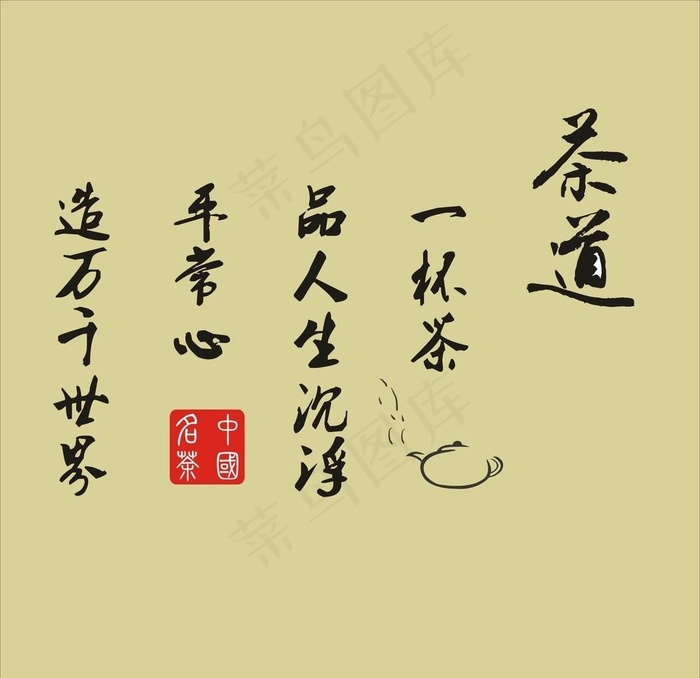 茶道
一杯茶
品人生沉浮
平常心
造万千世界
中國
名茶
菜鸟图库
菜鸟图库